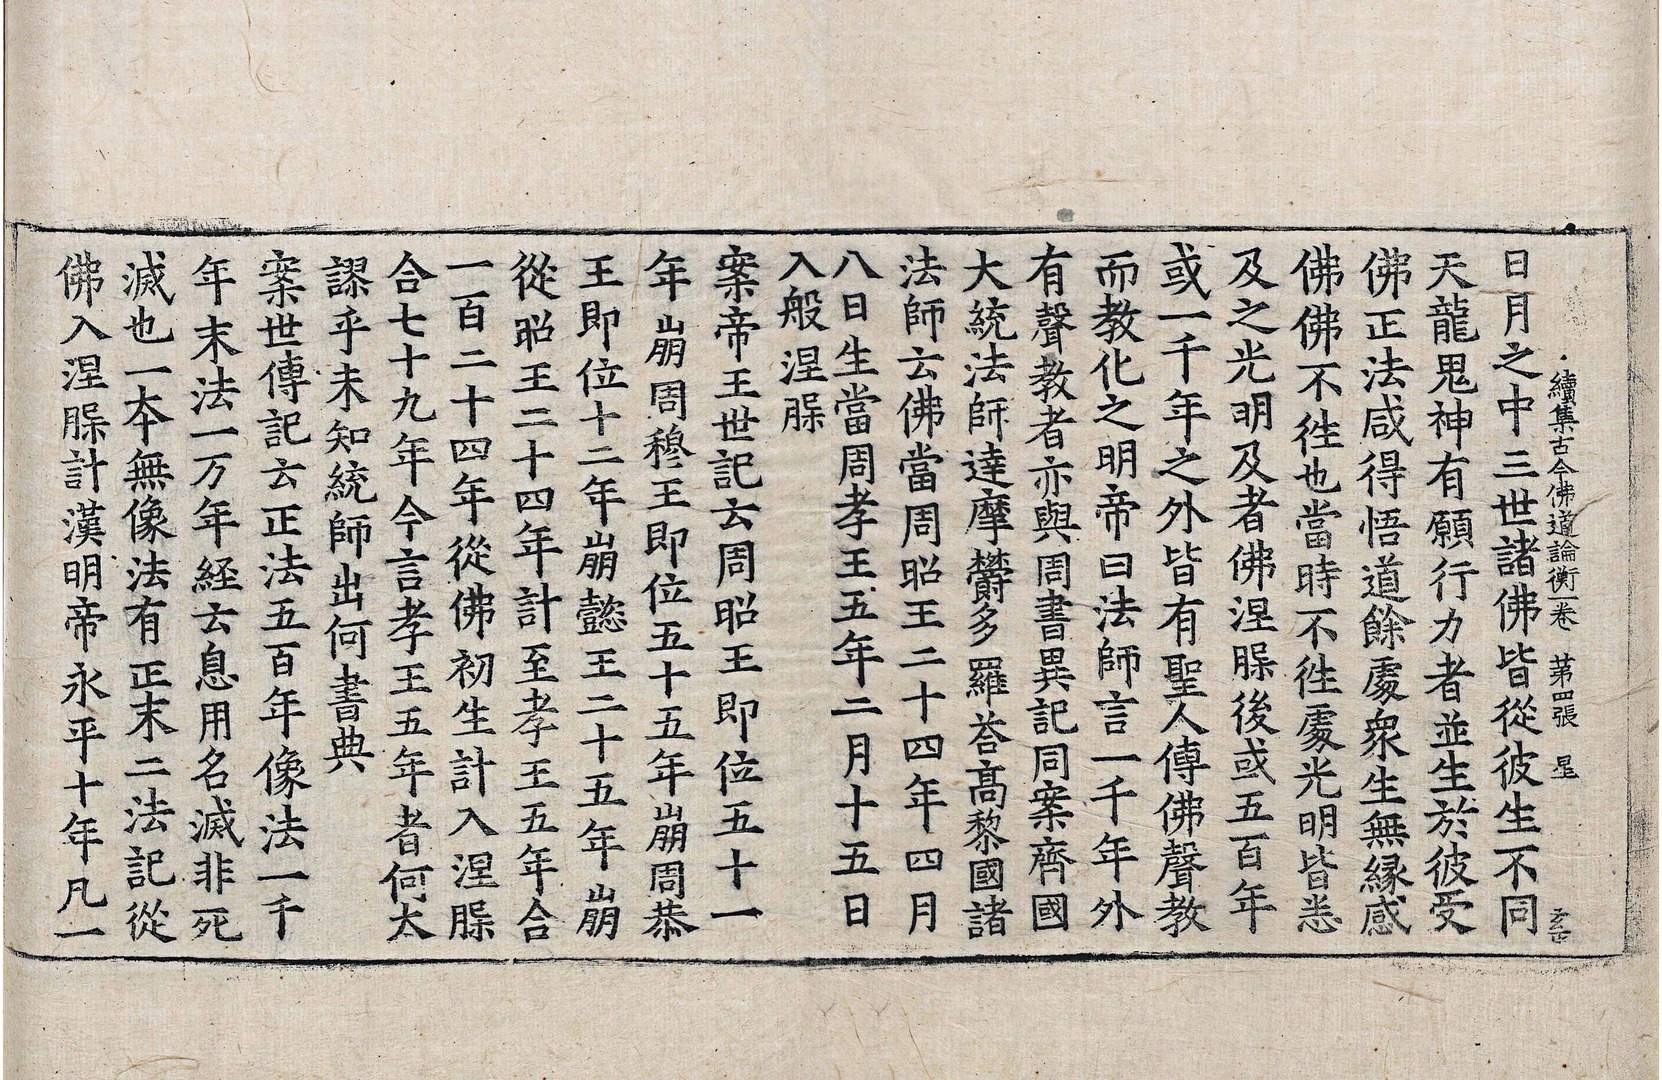 續集古今佛道論衡一卷 第四張 星
日月之中三世諸佛皆從彼生不同
天龍鬼神有願行力者並生於彼受
佛正法咸得悟道餘處衆生無緣感
佛佛不徃也當時不徃處光明皆悉
及之光明及者佛涅槃後或五百年
或一千年之外皆有聖人傳佛聲教
而教化之明帝曰法師言一千年外
有聲教者亦與周書異記同案齊國
大統法師達摩欝多羅荅高黎國諸
法師云佛當周昭王二十四年四月
八日生當周孝王五年二月十五日
入般涅槃
案帝王世記云周昭王即位五十一
年崩周穆王即位五十五年崩周恭
王即位十二年崩懿王二十五年崩
從昭王二十四年計至孝王五年合
一百二十四年從佛初生計入涅槃
合七十九年今言孝王五年者何太
謬乎未知統師出何書典
案世傳記云正法五百年像法一千
年末法一万年経云息用名滅非死
滅也一本無像法有正末二法記從
佛入涅槃計漢明帝永平十年凡一